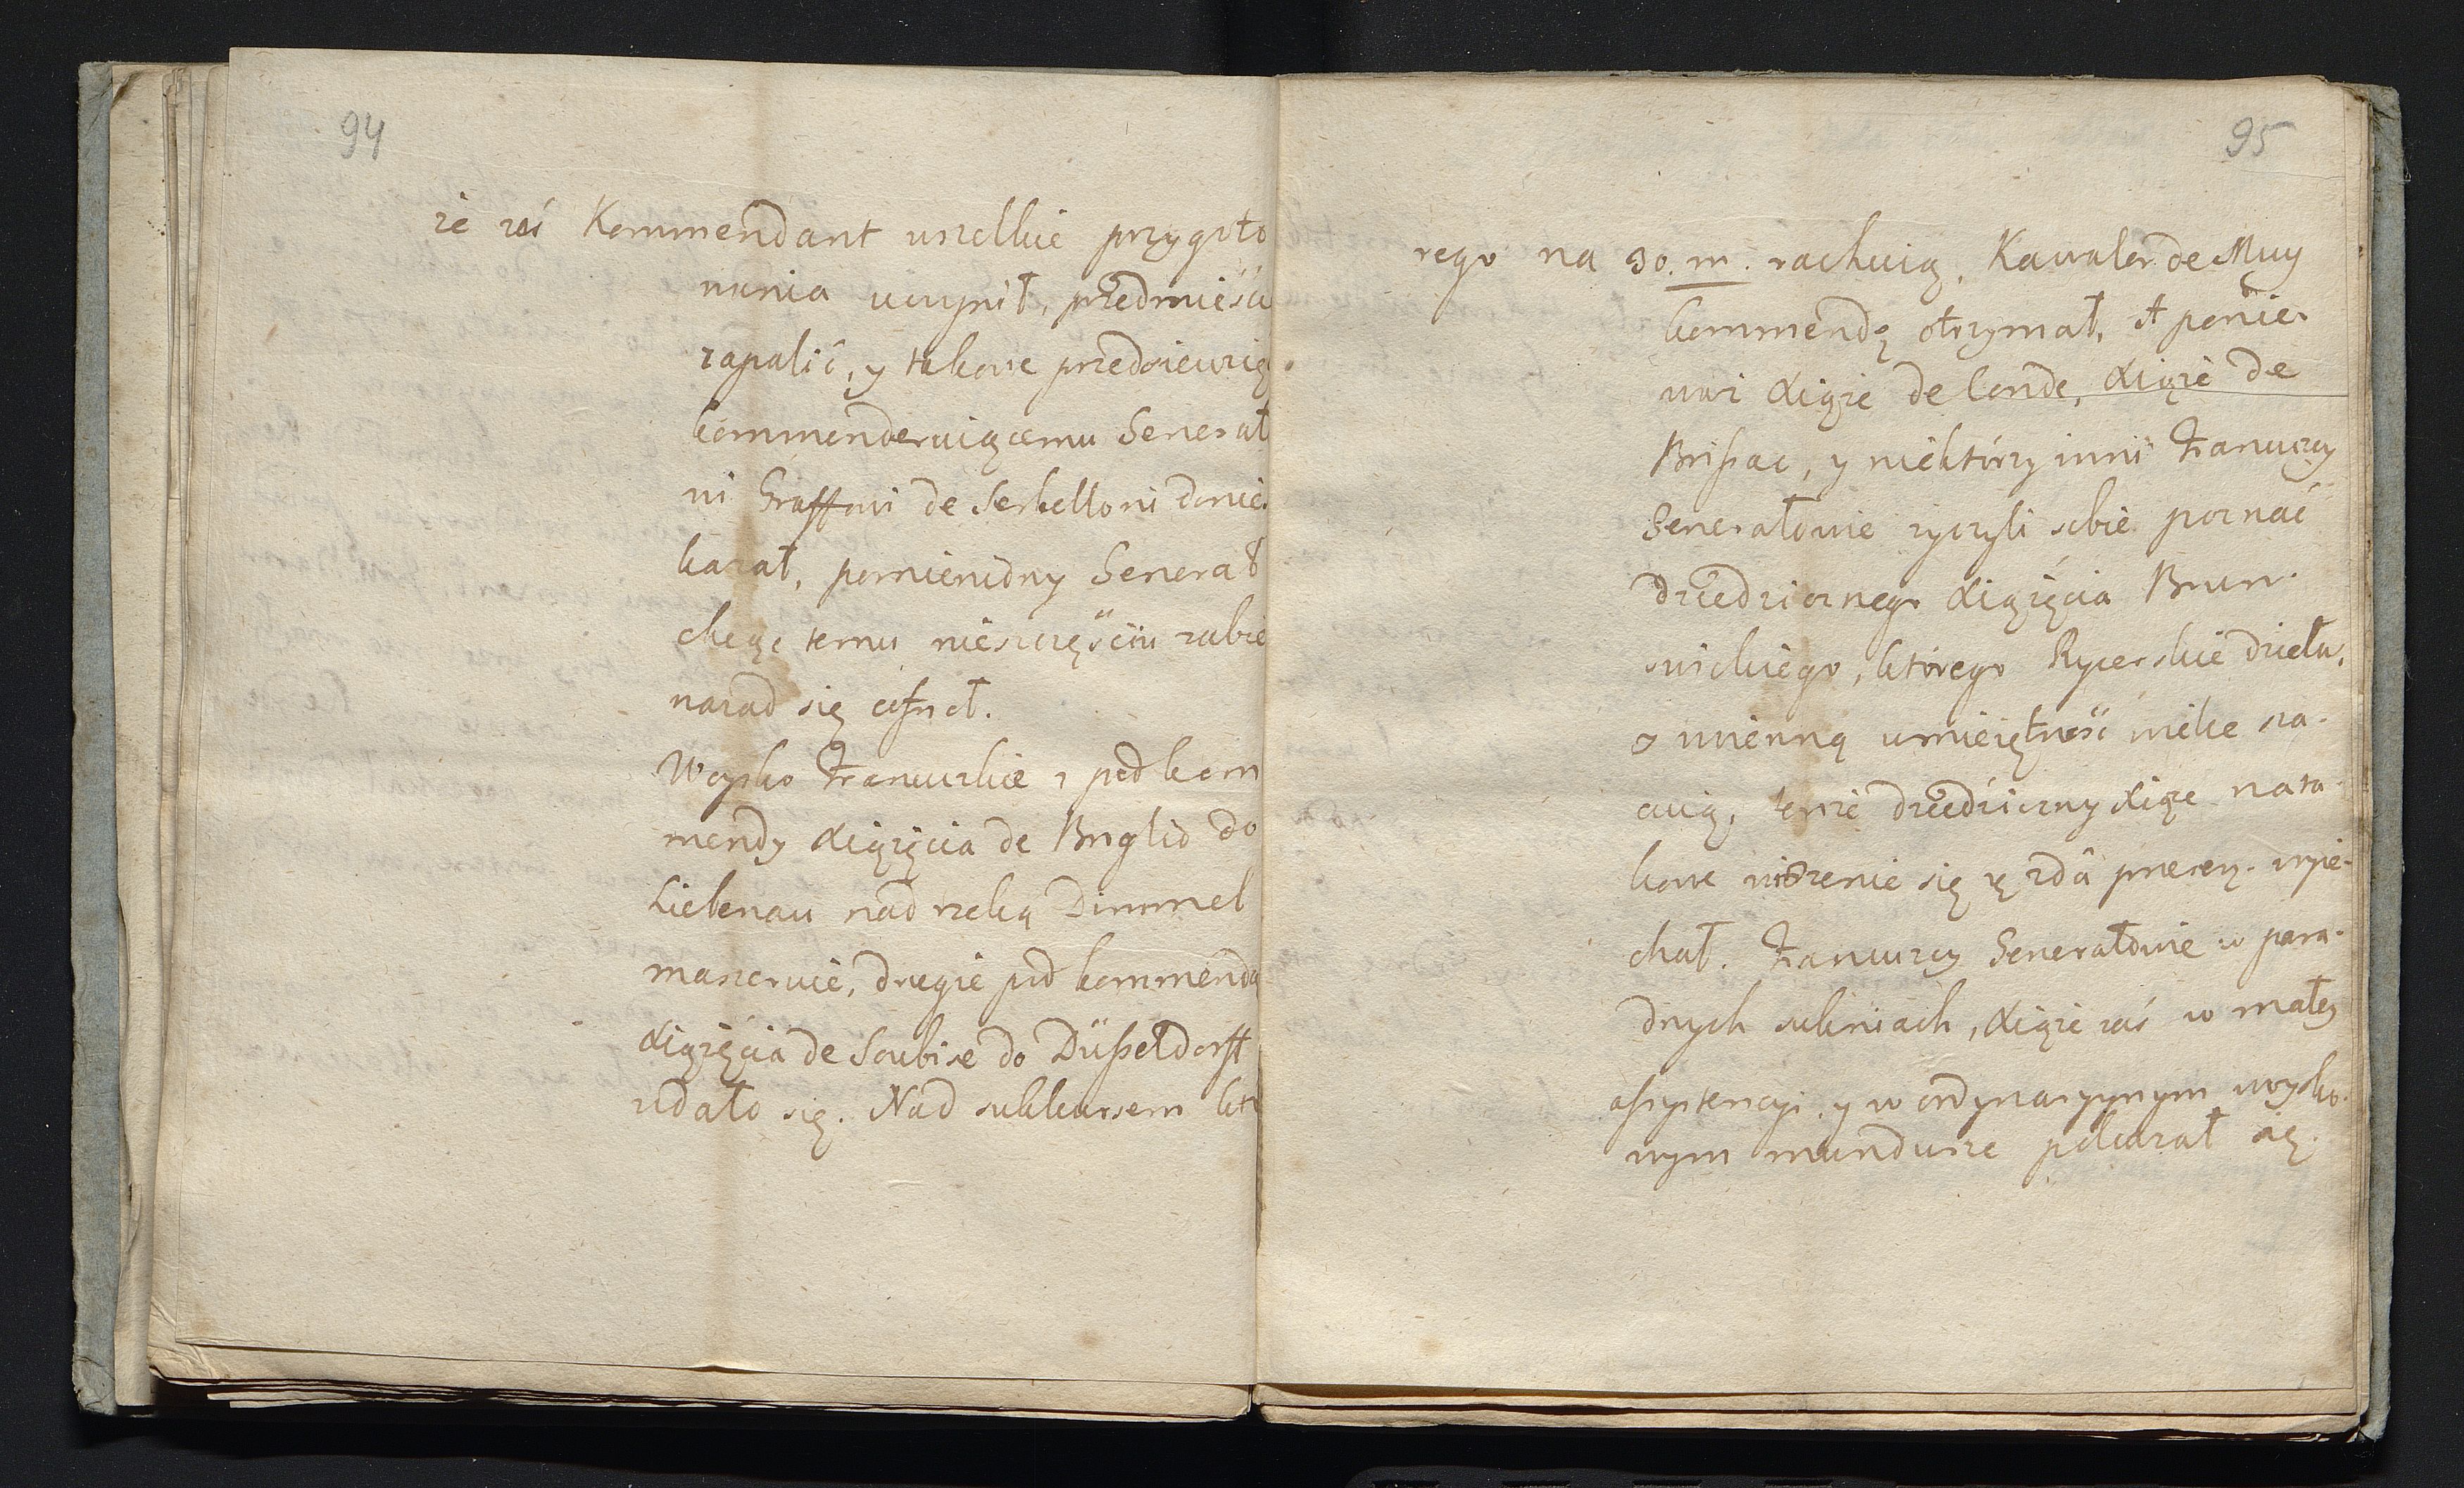 94
że zaś Kommendant wszelkie przygoto
wania uczynił, przedmieścia
zapalić, y takowe przedsiewzię.
kommenderuiącemu Generał
wi Graffowi de Serbelloni donie.
kazał, pomieniony Generał
chcąc temu nieszczęściu zabie
nazad się cofnoł.
Woysko Francuzkie z pod kom
mendy Xiążęcia de Broglio do
Liebenau nad rzeką Dimmel
maszeruie, drugie pod kommendą
Xiążęcia de Soubise do Düsseldorff
udało się. Nad sukkursem któ
95
rego na 30. m. rachuią, Kawaler de Muy
kommendę otrzymał. A ponie.
waż Xiąże de Conde, Xiąże de
Brissac, y niektórzy inni Francuzcy
Generałowie życzyli sobie poznać
Dziedzicznego Xiążęcia Brun.
swickiego, którego Rycerskie dzieła,
y woienną umieiętność wielce sza.
cuią, tenże Dziedziczny Xiąże na ta.
kowe widzenie się z 2da praesen. wyie.
chał. Francuzcy Generałowie w para.
dnych sukniach, Xiąże zaś w małey
assystencyi y w ordynaryinym woysko.
wym mundurze pokazał się.